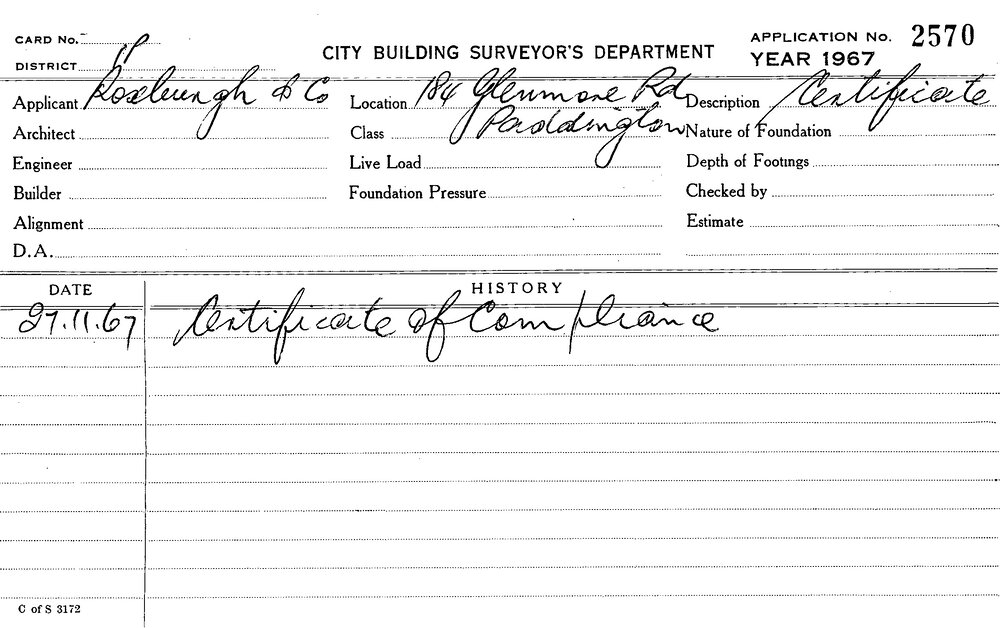 CARD No.
CITY BUILDING SURVEYOR'S DEPARTMENT
APPLICATION No. 2570
DISTRICT
YEAR 1967
Applicant Roxburgh & Co Location 184 Glenmore Rd Description Certificate
Architect Class Paddington Nature of Foundation
Engineer Live Load Depth of Footings
Builder Foundation Pressure Checked by
Alignment Estimate
D.A.
DATE HISTORY
27.11.67 Certificate of Compliance
C of S 3172